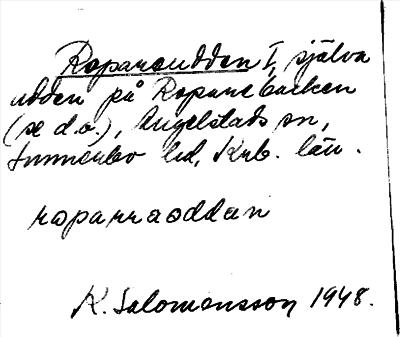 Ropareudden I, själva
udden på Roparebacken
(se d.o.), Angelstads sn,
Sunnerbo hd, Krb. län.
roparraoddan
K. Salomonsson 1948.